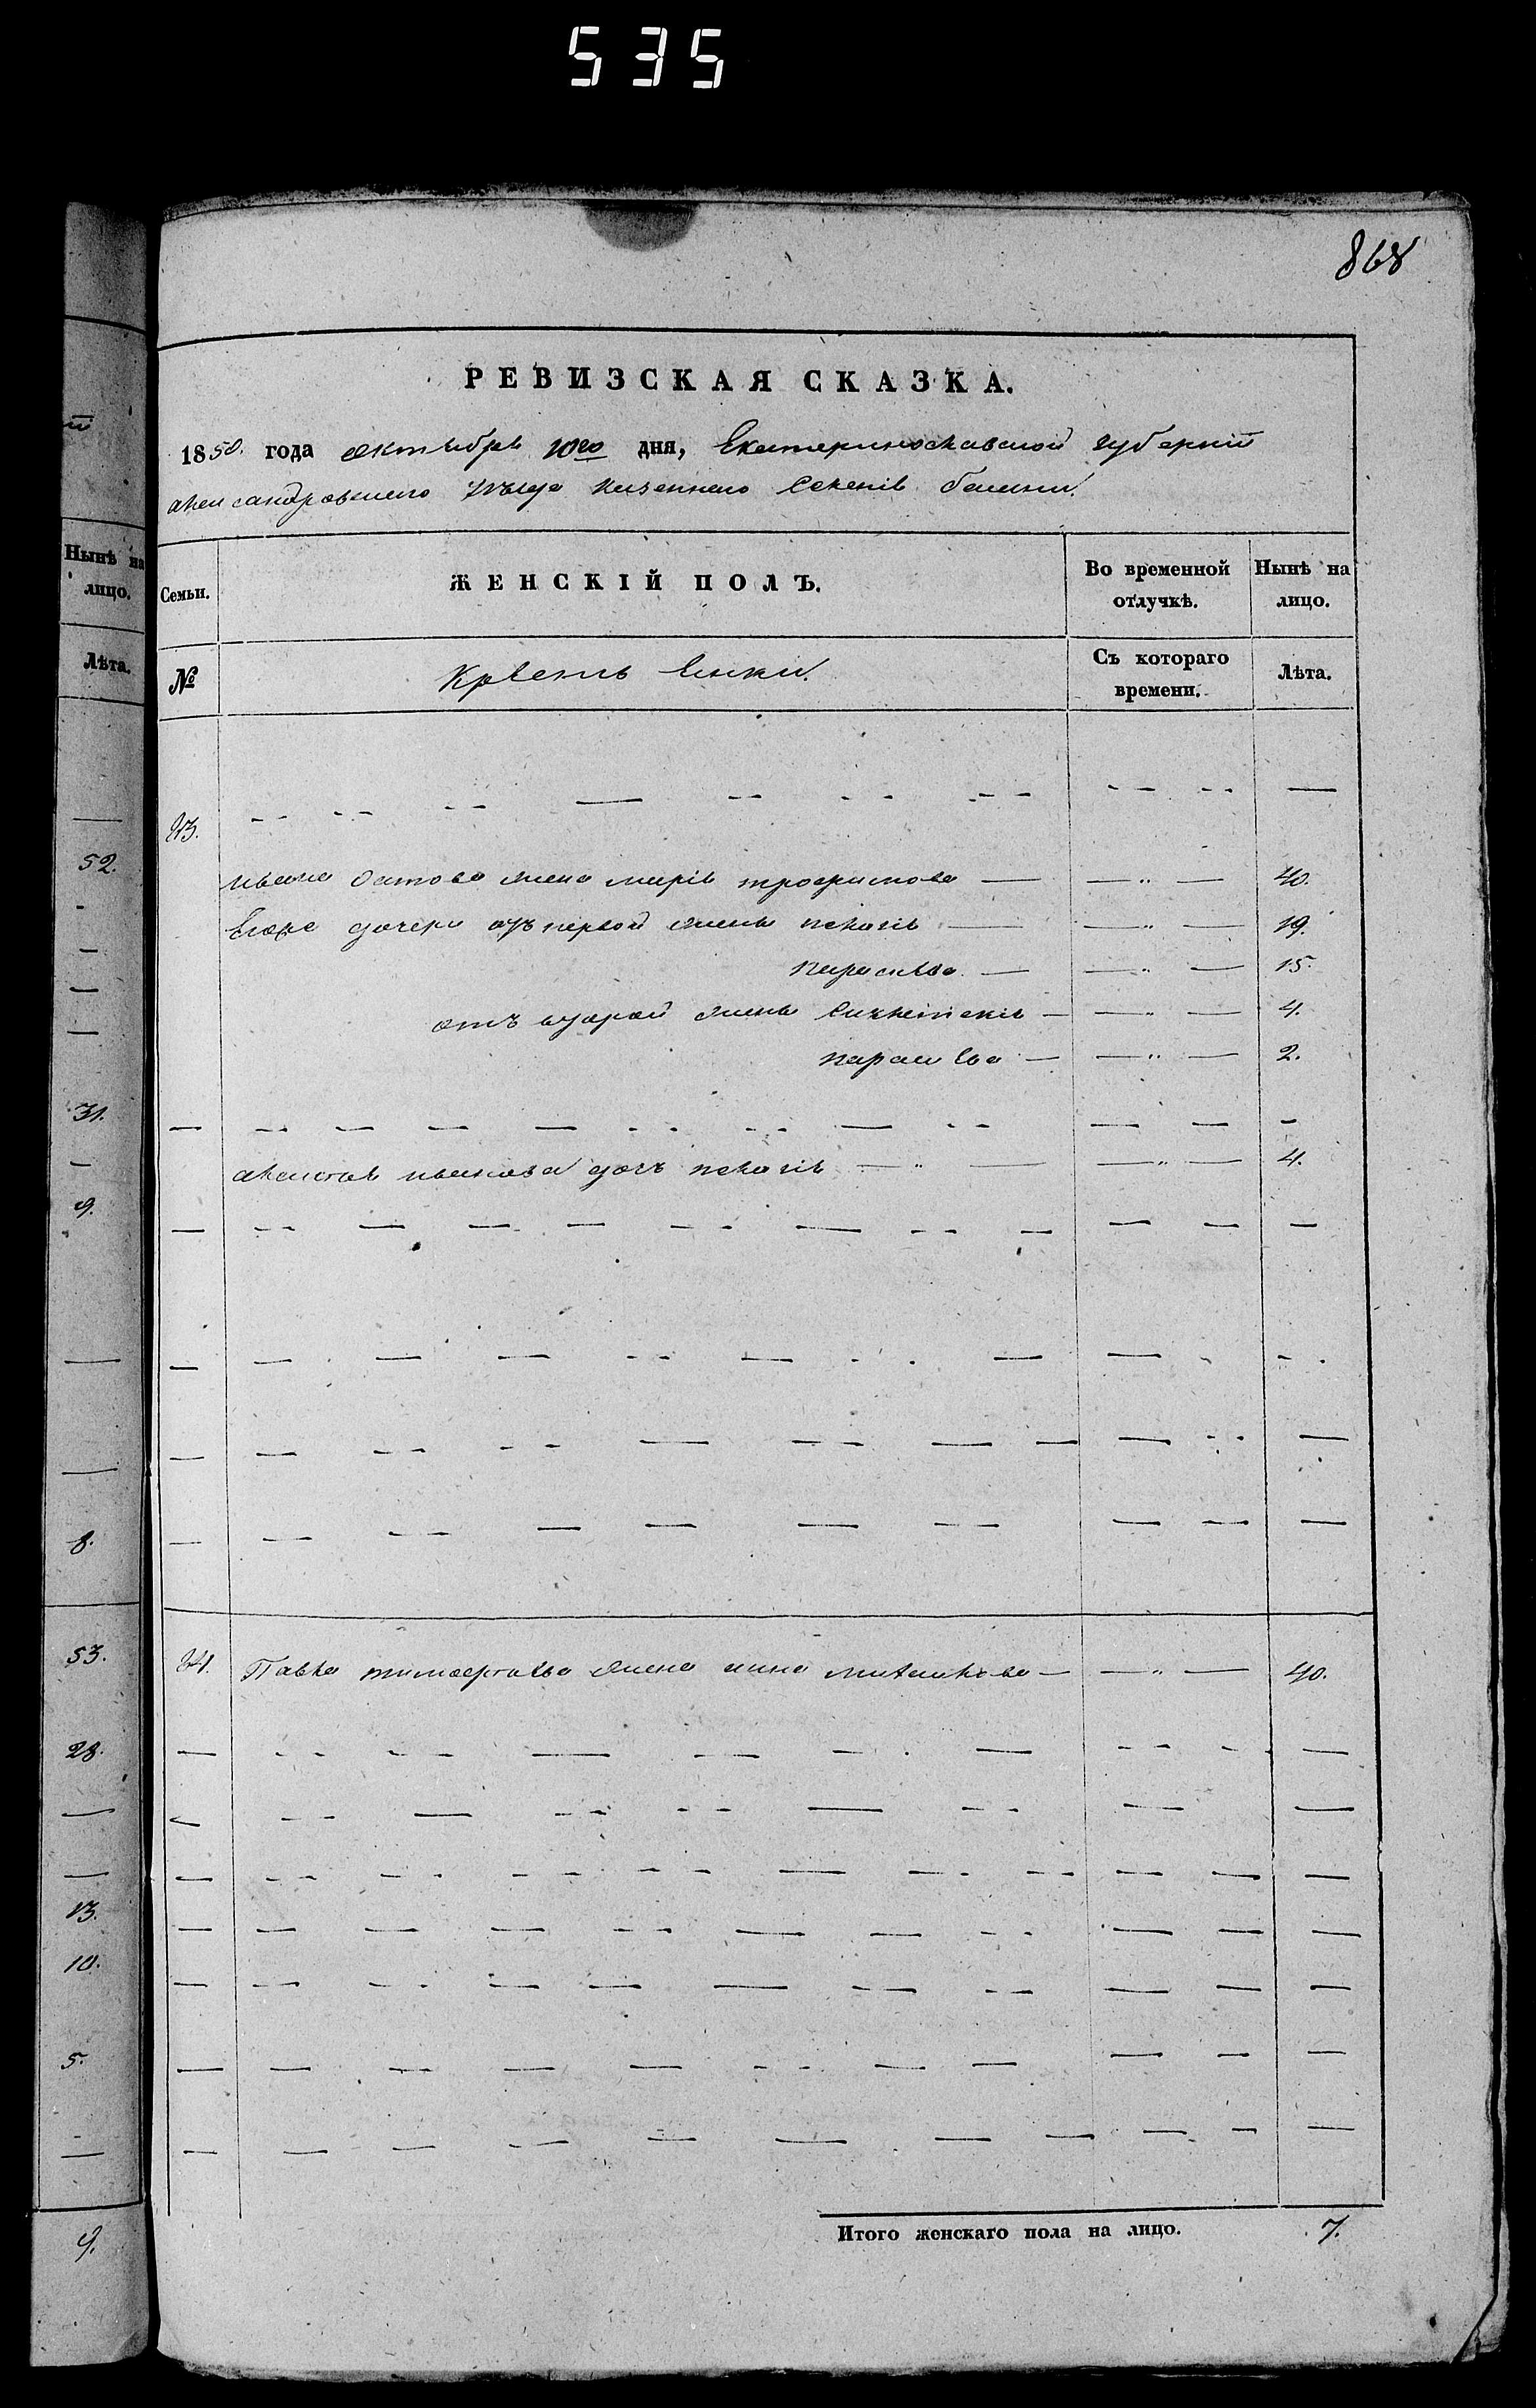 535
868
РЕВИЗСКАЯ СКАЗКА.
1850. года октября 10го дня, Екатеринославской губернии
александровского уезда казенного селенія белики.
Нынѣ на
лицо.
Лѣта.
Семьи.
ЖЕНСКІЙ ПОЛЪ.
Во временной
отлучкѣ.
Нынѣ на
лицо.
№
Съ котораго
времени.
Лѣта.
13.
52.
ивана жена марія трофимова 40.
Егоже дочери отъ первой жены пелагія 19.
парасква 15.
отъ второй жены 4.
парасква 2.
31.
иванова дочъ пелагія 4.
9.
8.
53.
14. Павла тимофеева жена анна михайлова 40.
28.
13.
10.
5.
Итого женскаго пола на лицо. 7.
9.